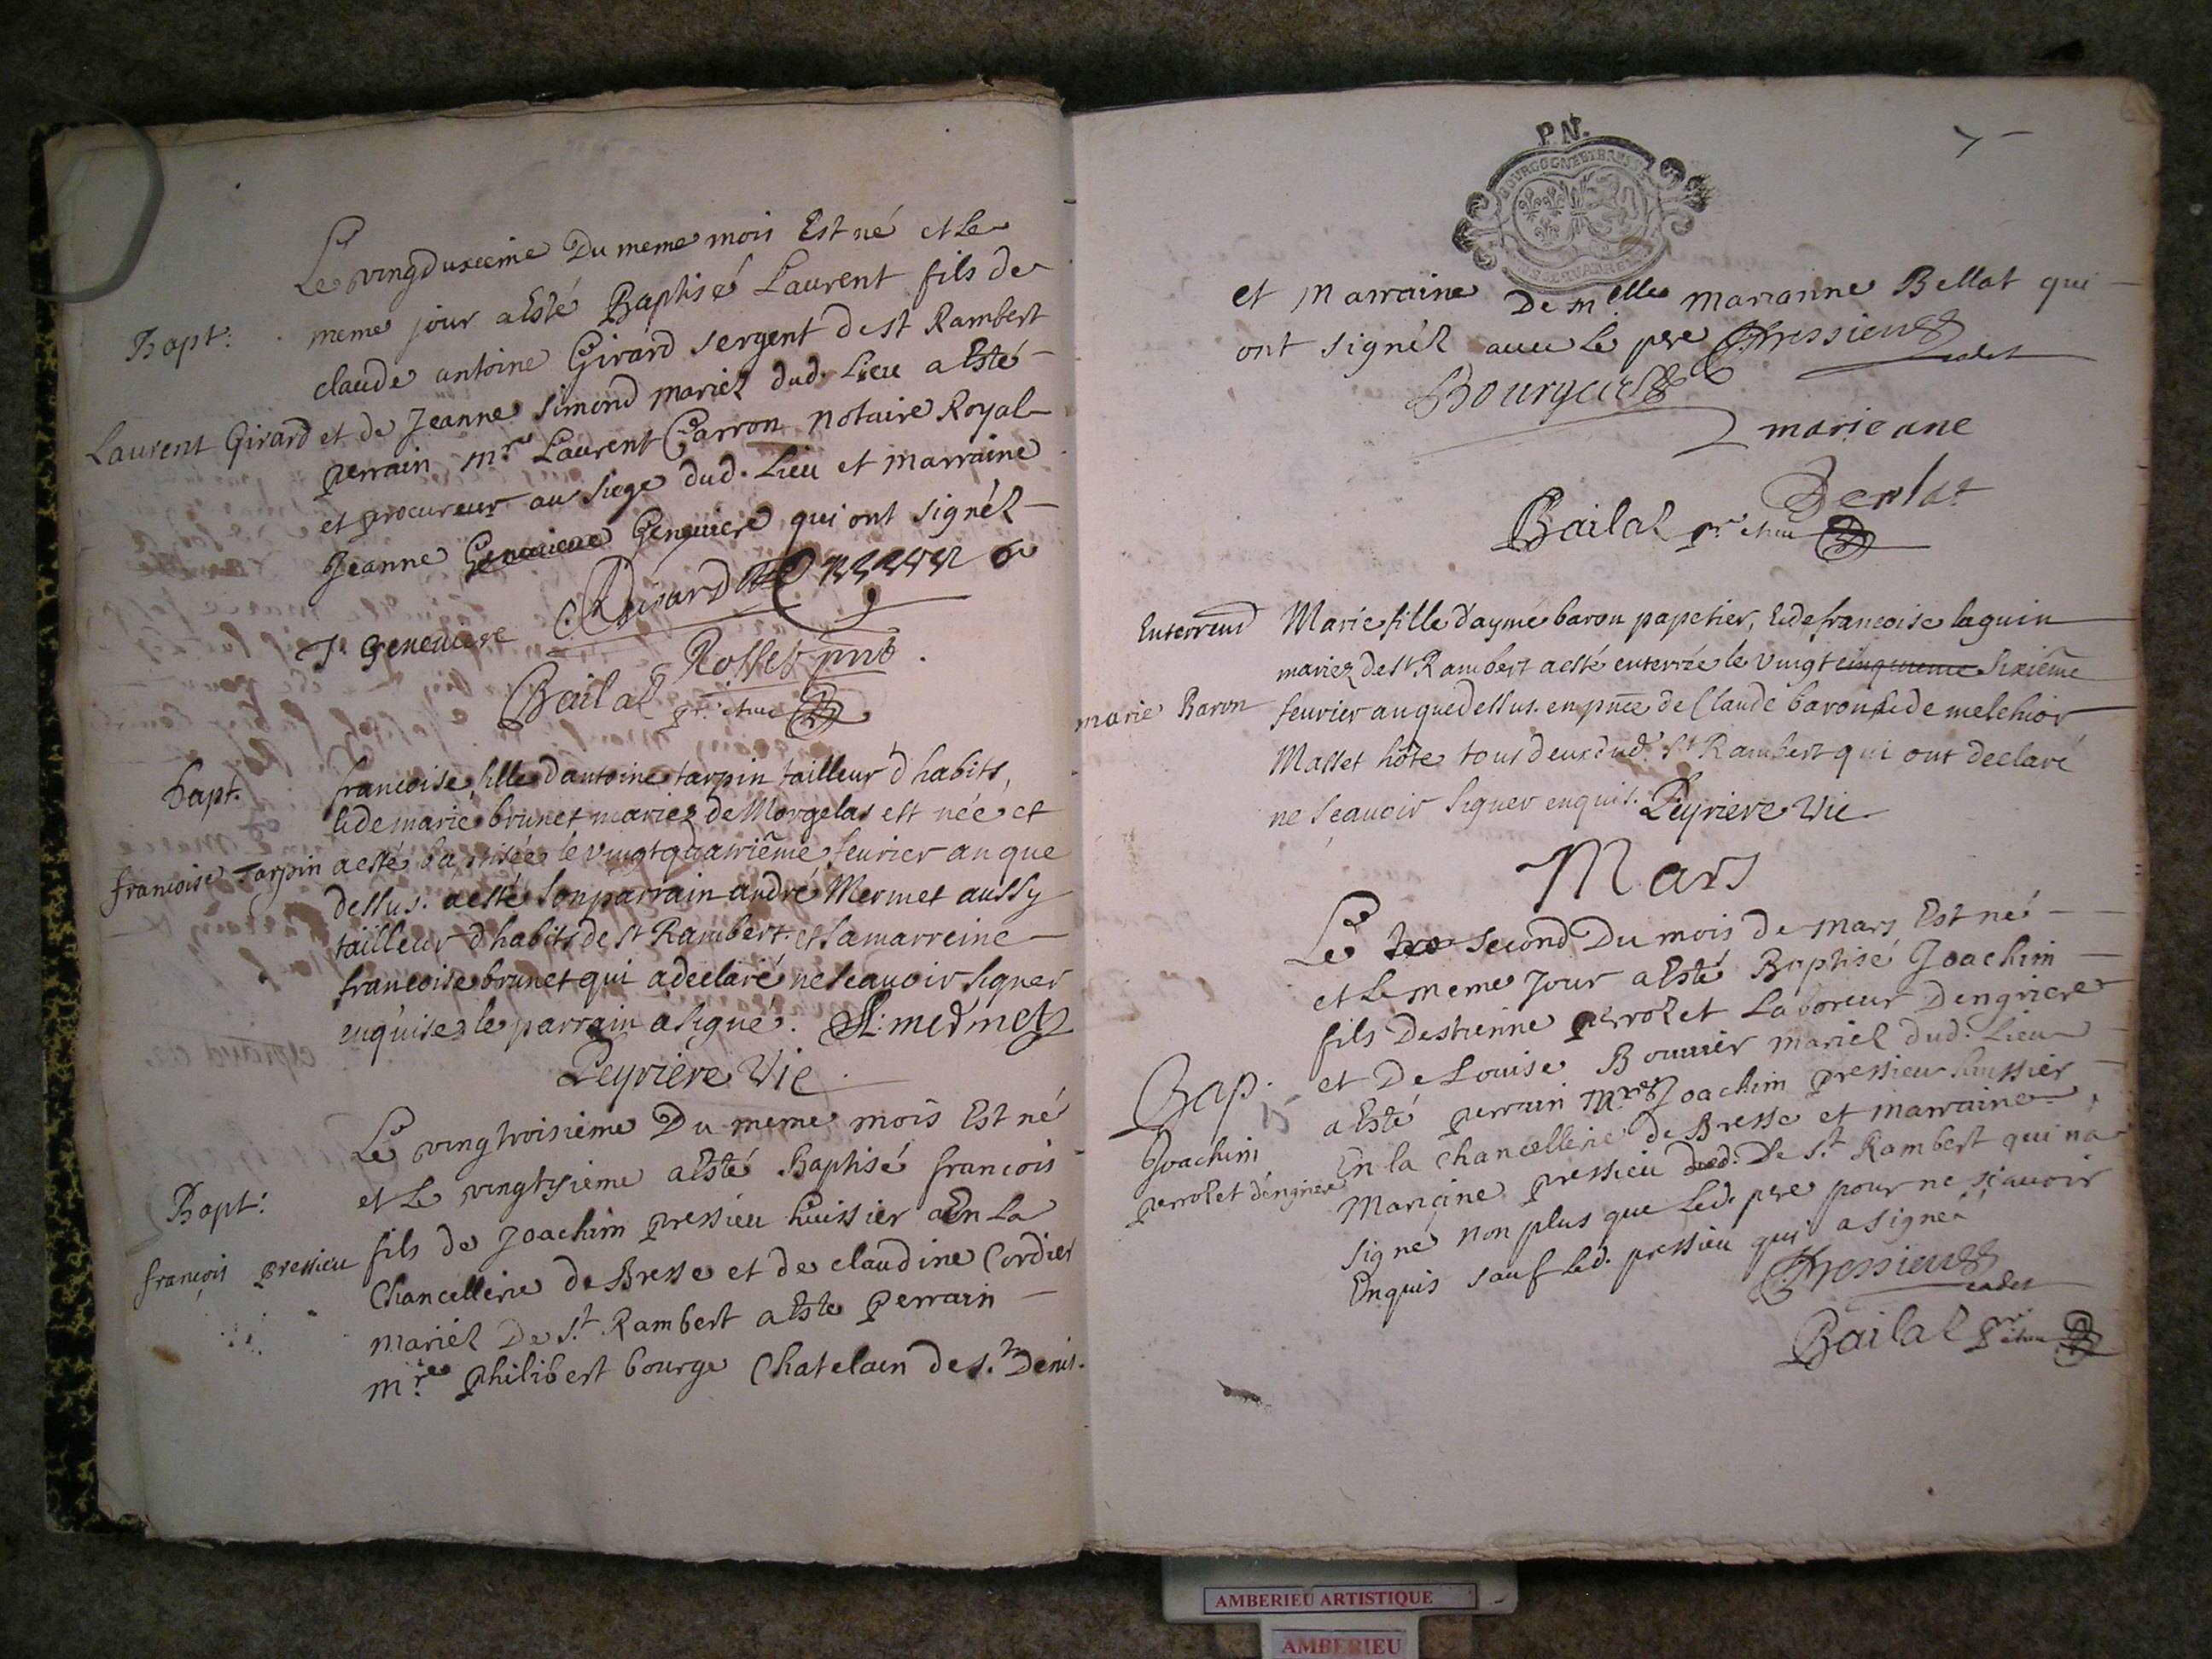 Le vingduxieme Du meme mois Est né et Le
Bapt: meme jour a Esté Baptisé Laurent fils de
claude antoine Girard sergent de st Rambert
Laurent Girard et de Jeanne simond mariez dud. Lieu a Esté
perrain mr Laurent Carron notaire Royal
et procureur au siege dud. Lieu et marraine
Jeanne Genevieve qui ont signéz
Girard Carron
J. genevieve Rosset pnt
Bailat
bapt. francoise fille dantoine tarpin tailleur d'habits,
& de marie brunet mariez de Morgelas est née et
francoise Tarpin a esté baptisée le vingt quatriême feurier an que
dessus. a esté son parrain andré Mermet aussy
tailleur d'habits de st Rambert. et sa marreine
francoise brunet qui a declaré ne scauoir signer
enquise. le parrain a signé. A: mermet
Peyriere Vic.
Le vingtroisieme Du meme mois Est né
et Le vingtsieme a Esté Baptisé francois
Bapt: fils de Joachim pressieu huissier En La
françois pressieu Chancellerie de Bresse et de claudine Cordier
mariez De s.t Rambert a Esté perrain
mre philibert bourge Chatelain de s.t Denis.
P.N.
BOURGOGNE ET BRESSE
7
et Marraine De melle marianne Bellat qui
ont signéz auec le pere Pressieu
cadet
Bourge
marie ane
Berlat
Bailat
Enterremt Marie fille d'aymé baron papetier, & de francoise laguin
mariez de st Rambert a esté enterrée le vingt cinquieme sixiême
marie Baron feurier an que dessus. en pnce de Claude baron & de melchior
Masset hôte tous deux dud. st Rambert qui ont declaré
ne sçauoir signer enquis. Peyriere Vic
Mars
Le second Du mois de mars Est né
et Le meme jour a Esté Baptisé Joachim
fils Destienne perrozet Laboreur Dengriere
Bap. et De Louise Bouuier mariez dud. Lieu
15 a Esté perrain mre Joachim pressieu huissier
Joachim En la chancellerie de Bresse et marraine
perrozet d'engriere Marcine pressieu De s.t Rambert qui na
signé non plus que Led. pere pour ne scauoir
Enquis sauf Led. pressieu qui a signé
Pressieu
cadet
Bailat
AMBERIEU ARTISTIQUE
AMBERIEU